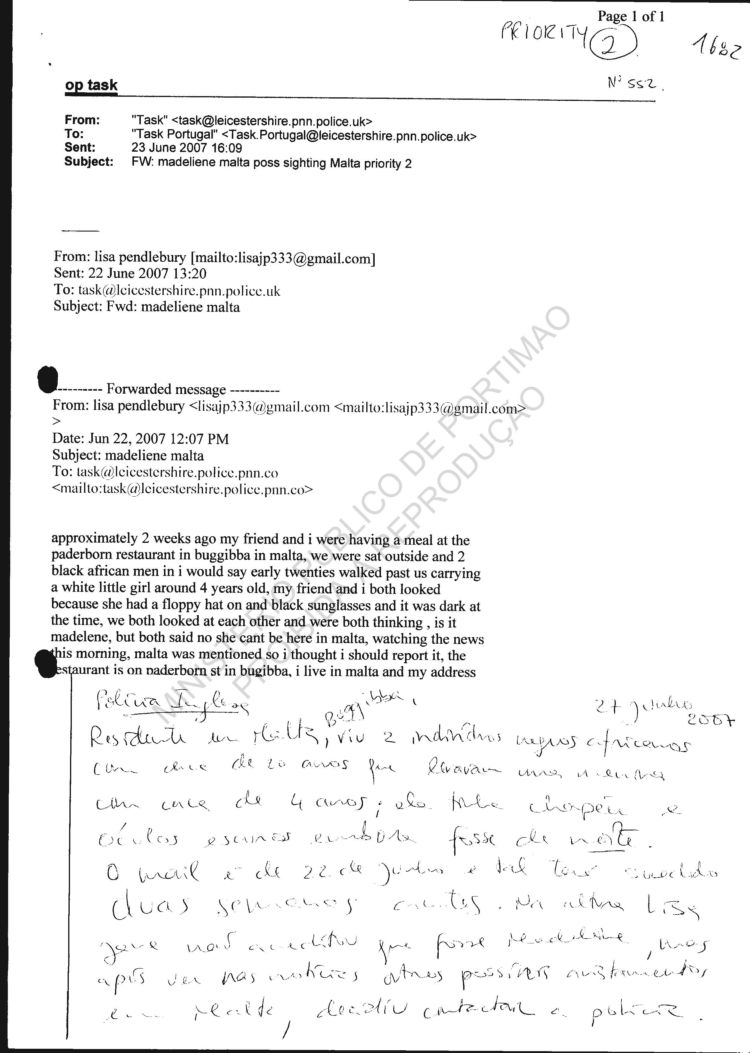 Page 1 of 1
PRIORITY 2
1682
Nº 552.
op task
From: "Task" <task@leicestershire.pnn.police.uk>
To: "Task Portugal" <Task.Portugal@leicestershire.pnn.police.uk>
Sent: 23 June 2007 16:09
Subject: FW: madeliene malta poss sighting Malta priority 2
From: lisa pendlebury [mailto:lisajp333@gmail.com]
Sent: 22 June 2007 13:20
To: task@leicestershire.pnn.police.uk
Subject: Fwd: madeliene malta
---------- Forwarded message ----------
From: lisa pendlebury <lisajp333@gmail.com <mailto:lisajp333@gmail.com>
>
Date: Jun 22, 2007 12:07 PM
Subject: madeliene malta
To: task@leicestershire.police.pnn.co
<mailto:task@leicestershire.police.pnn.co>
MINISTÉRIO PUBLICO DE PORTIMAO
PROIBIDA A REPRODUÇÃO
approximately 2 weeks ago my friend and i were having a meal at the
paderborn restaurant in buggibba in malta, we were sat outside and 2
black african men in i would say early twenties walked past us carrying
a white little girl around 4 years old, my friend and i both looked
because she had a floppy hat on and black sunglasses and it was dark at
the time, we both looked at each other and were both thinking , is it
madelene, but both said no she cant be here in malta, watching the news
this morning, malta was mentioned so i thought i should report it, the
estaurant is on paderborn st in bugibba, i live in malta and my address
Polícia Inglesa
27 Junho 2007
Residente em Malta, Buggibba, viu 2 indivíduos negros africanos
com cerca de 20 anos que levavam uma menina
com cerca de 4 anos; ela tinha chapéu e
óculos escuros embora fosse de noite.
O mail é de 22 de Junho e tal terá sucedido
duas semanas antes. Na altura Lisa
Jane não acreditou que fosse Madeleine, mas
após ver nas notícias outros possíveis avistamentos
em Malta, decidiu contactar a polícia.